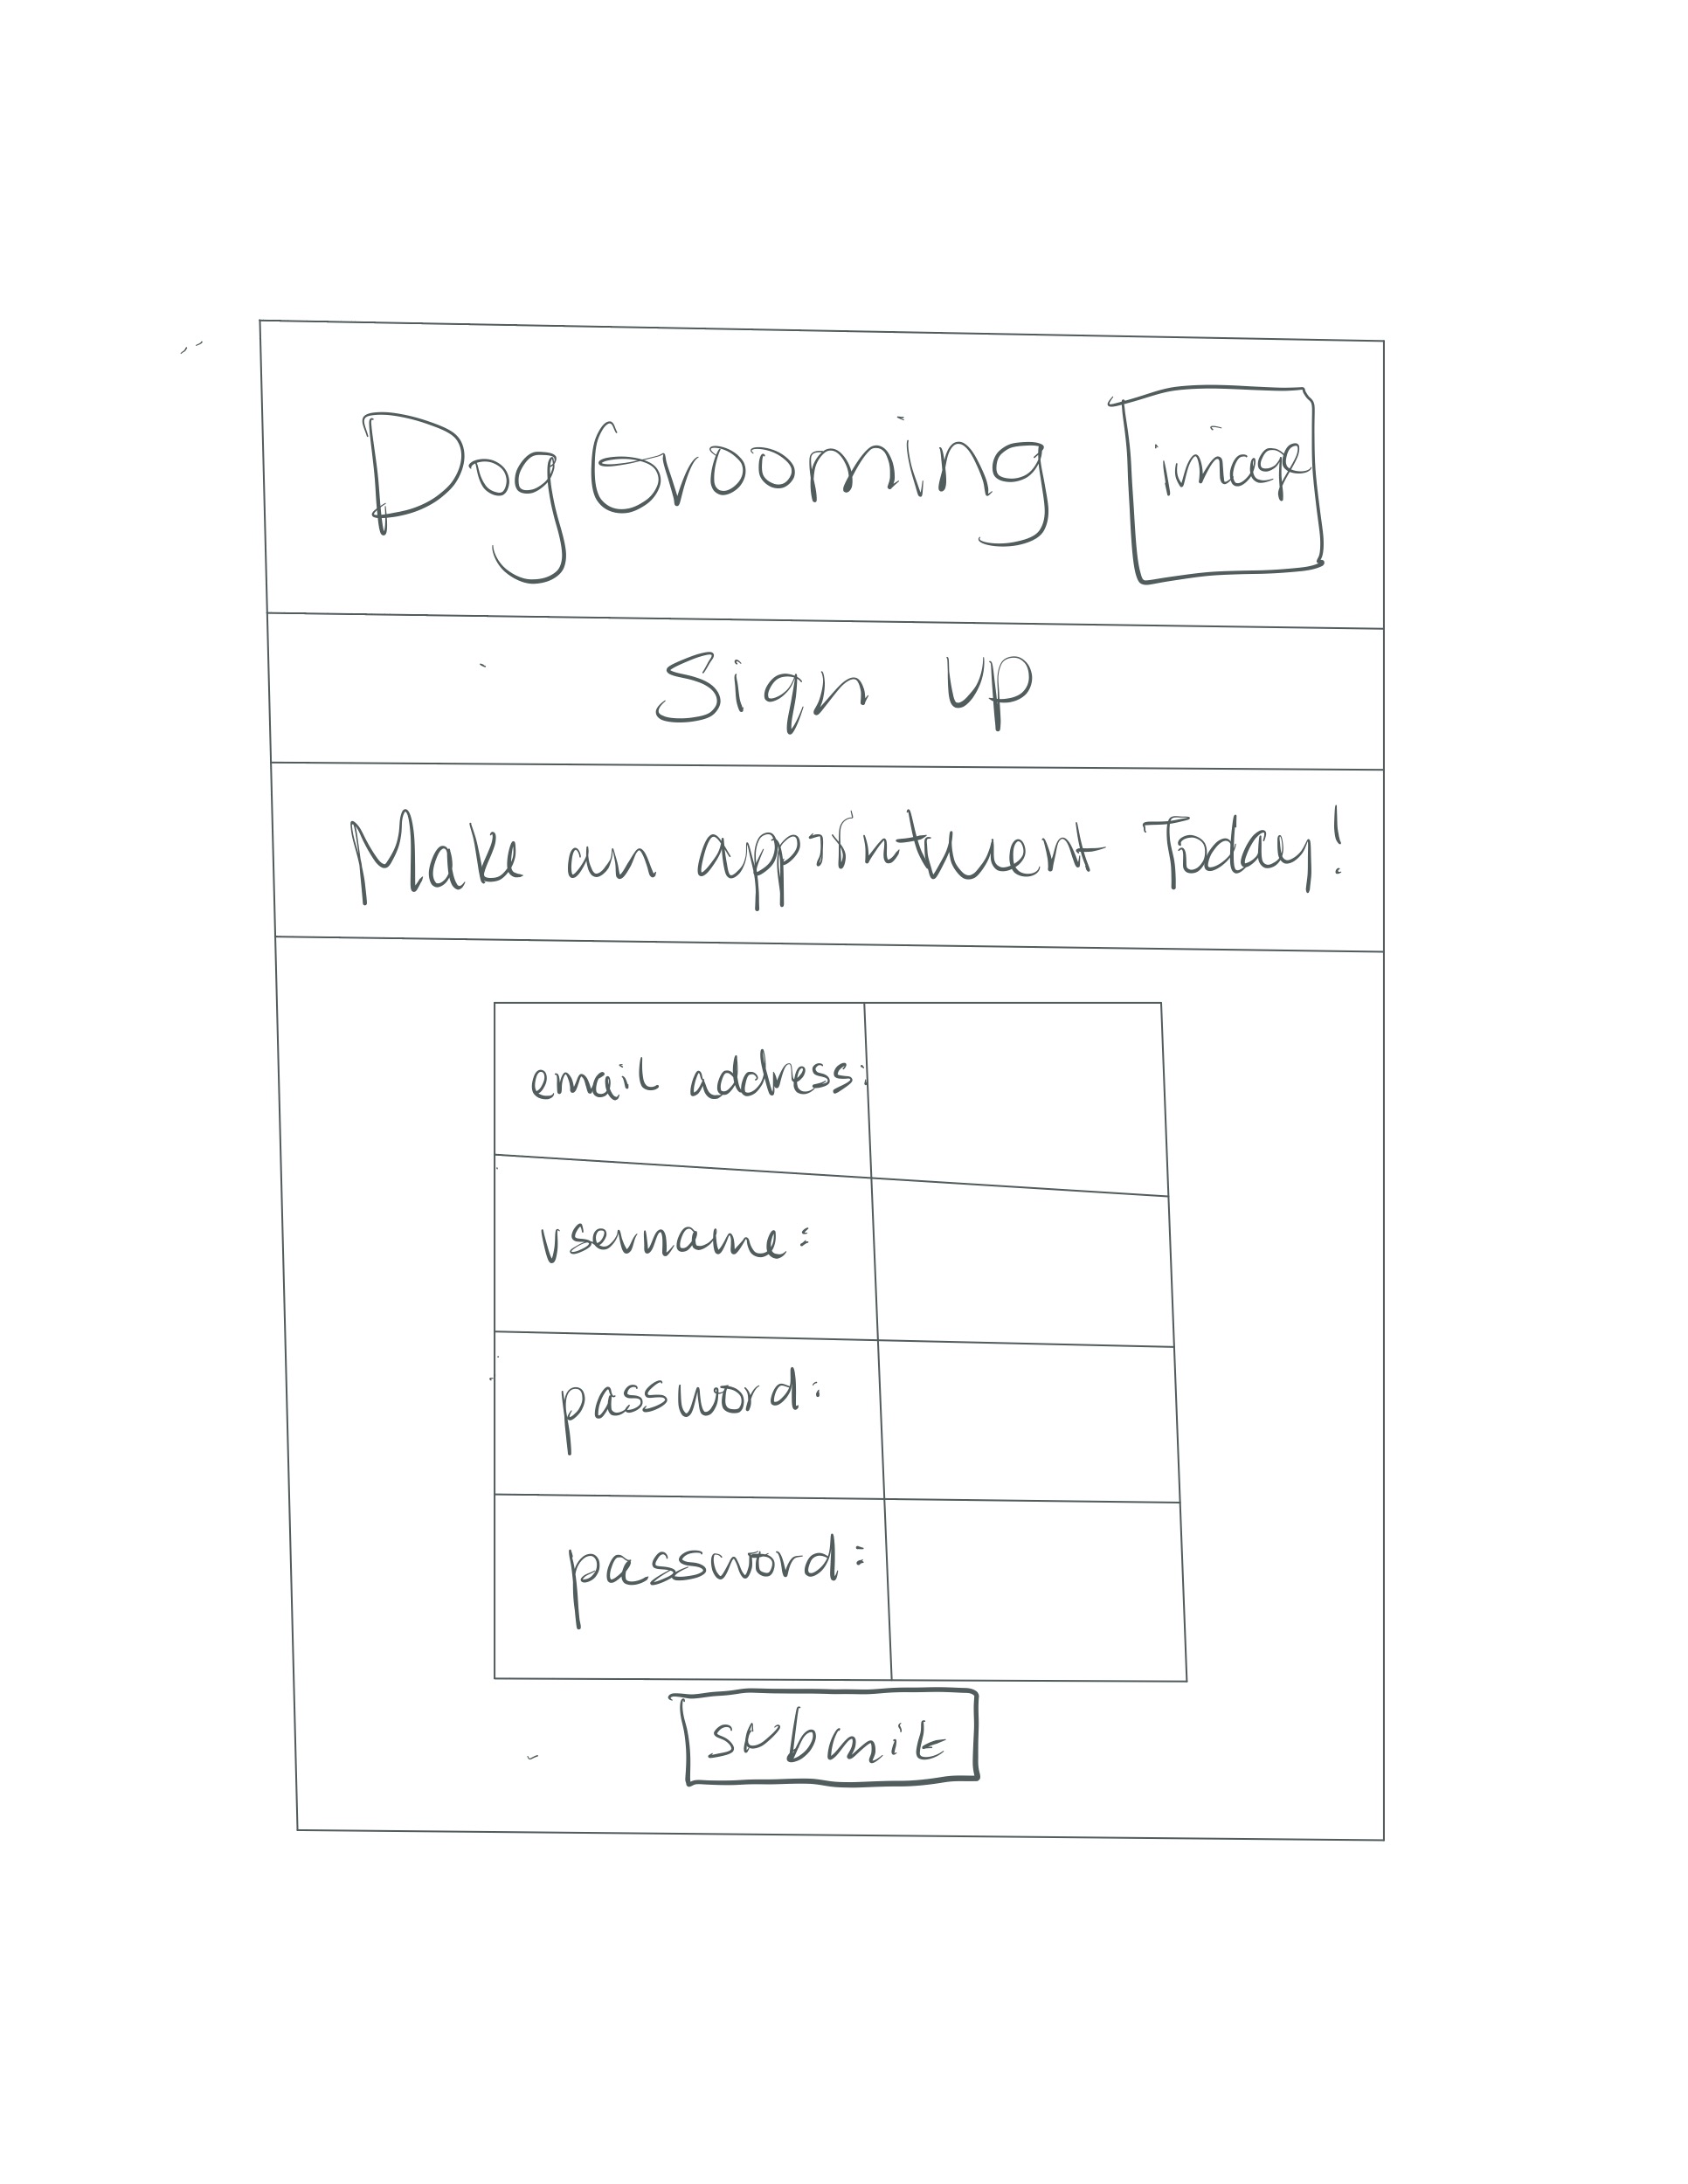 Dog Grooming
image
Sign Up
Make an appointment Today!
email address:
username:
password:
password:
submit